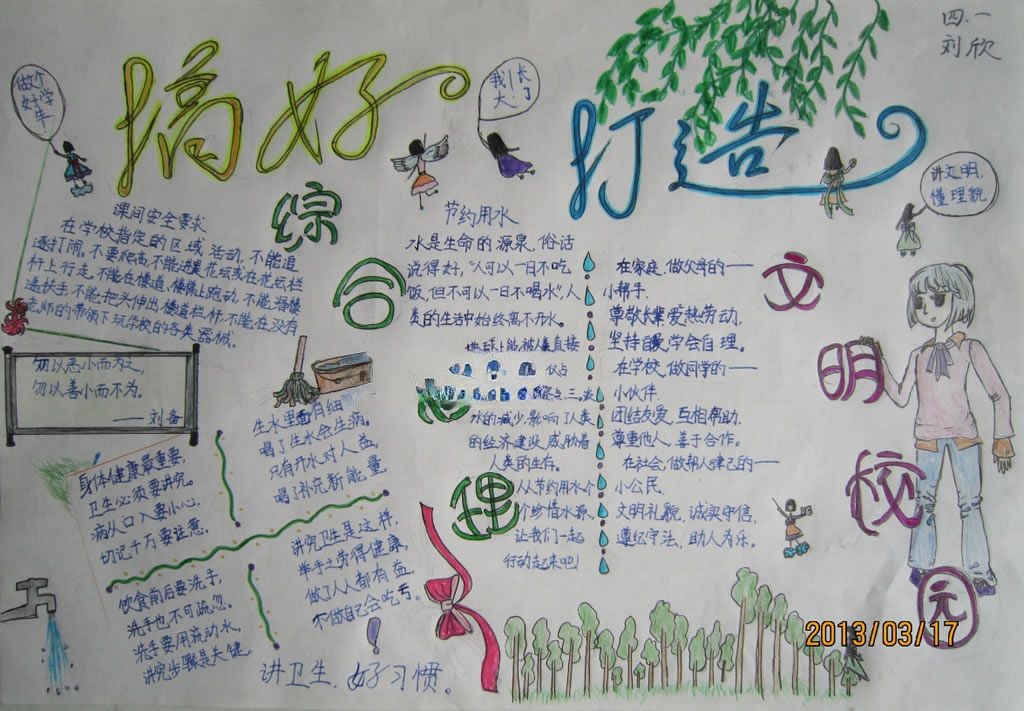 四.一
刘欣
搞好
综
合
治
理
打造
文
明
校
园
做个
好小学
生!
我!长
大了
讲文明.
懂理貌
课间安全要求
在学校指定的区域活动,不能追
逐打闹。不要爬高,不能进花坛或在花坛栏
杆上行走,不能在楼道、楼梯上跑动,不能滑楼
递扶手,不能把头伸出楼道栏杆,不能在没有
老师的带领下玩学校的各类器械。
勿以恶小而为之,
勿以善小而不为。
——刘备
身体健康最重要,
卫生必须要讲究。
病从口入要小心,
切记千万要注意.
生水里面有细
喝了生水会生病。
只有开水对人益,
喝了补充新能量.
饮食前后要洗手,
洗手也不可疏忽。
洗手要用流动水,
讲究步骤是关键.
讲究卫生是这样,
举手之劳得健康,
做了人人都有益.
不做自己会吃亏.
讲卫生,好习惯。
节约用水
水是生命的源泉,俗话
说得好,“人可以一日不吃
饭,但不可以一日不喝水”,人
类的生活中始终离不开水。
地球上能被人类直接
仅占
水的减少,影响了人类
的经济建设,威胁着
人类的生存。
从节约用水个
个珍惜水源,
让我们一起
行动起来吧!
在家庭,做父母的——
小帮手.
尊敬长辈,爱热劳动,
坚持自学会自理。
在学校,做同学的——
小伙伴.
团结友爱,互相帮助.
尊重他人,善于合作。
在社会,做帮人律己的——
小公民.
文明礼貌,诚实守信,
遵纪守法,助人为乐。
2013/03/17